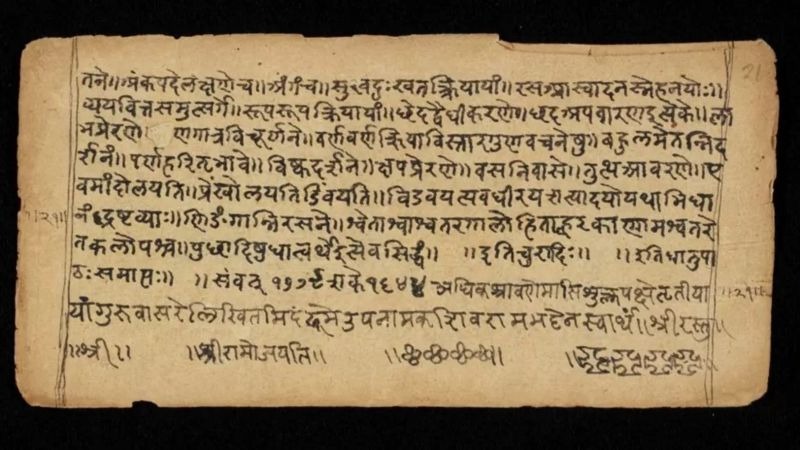 तने॥ अंकपदे लक्षणे च॥ अंगं च॥ सुखदुःखतत्क्रियायां॥ रस आस्वादनस्नेहनयोः॥
व्ययवित्तसमुत्सर्गे॥ रूपरूपक्रियायां॥ छेदद्वैधीकरणे॥ छद अपवारण इत्येके॥ ला
भप्रेरणे॥ व्रणगात्रविचूर्णने॥ वर्णवर्णक्रियाविस्तारगुणवचनेषु॥ बहुलमेतन्निद
र्शनं॥ पर्णहरितभावे॥ विष्कदर्शने॥ क्षपप्रेरणे॥ वसनिवासे॥ तुत्थआवरणे॥ ए
वमांदोलयति॥ प्रेंखोलयति॥ विडंबयति॥ अवधीरय इत्यादयोयथाभिधा
नं द्रष्टव्याः॥ णिङंगान्निरसने॥ श्वेताश्वाश्वतरगालोडिताह्वरकाणामश्वतरे
तकलोपश्च॥ पुछादिषुधात्वर्थेइत्येवसिद्धं॥ ॥इतिचुरादिः॥ ॥इतिधातुपा
ठःसमाप्तः॥ ॥संवत् शके १६४४ अधिकश्रावणेमासिशुक्लपक्षेतृतीया
यांगुरुवासरेलिखितमिदं उपनामक रामभट्टेनस्वार्थं॥ श्रीरस्तु॥
॥श्री॥ ॥श्रीरामोजयति॥
21